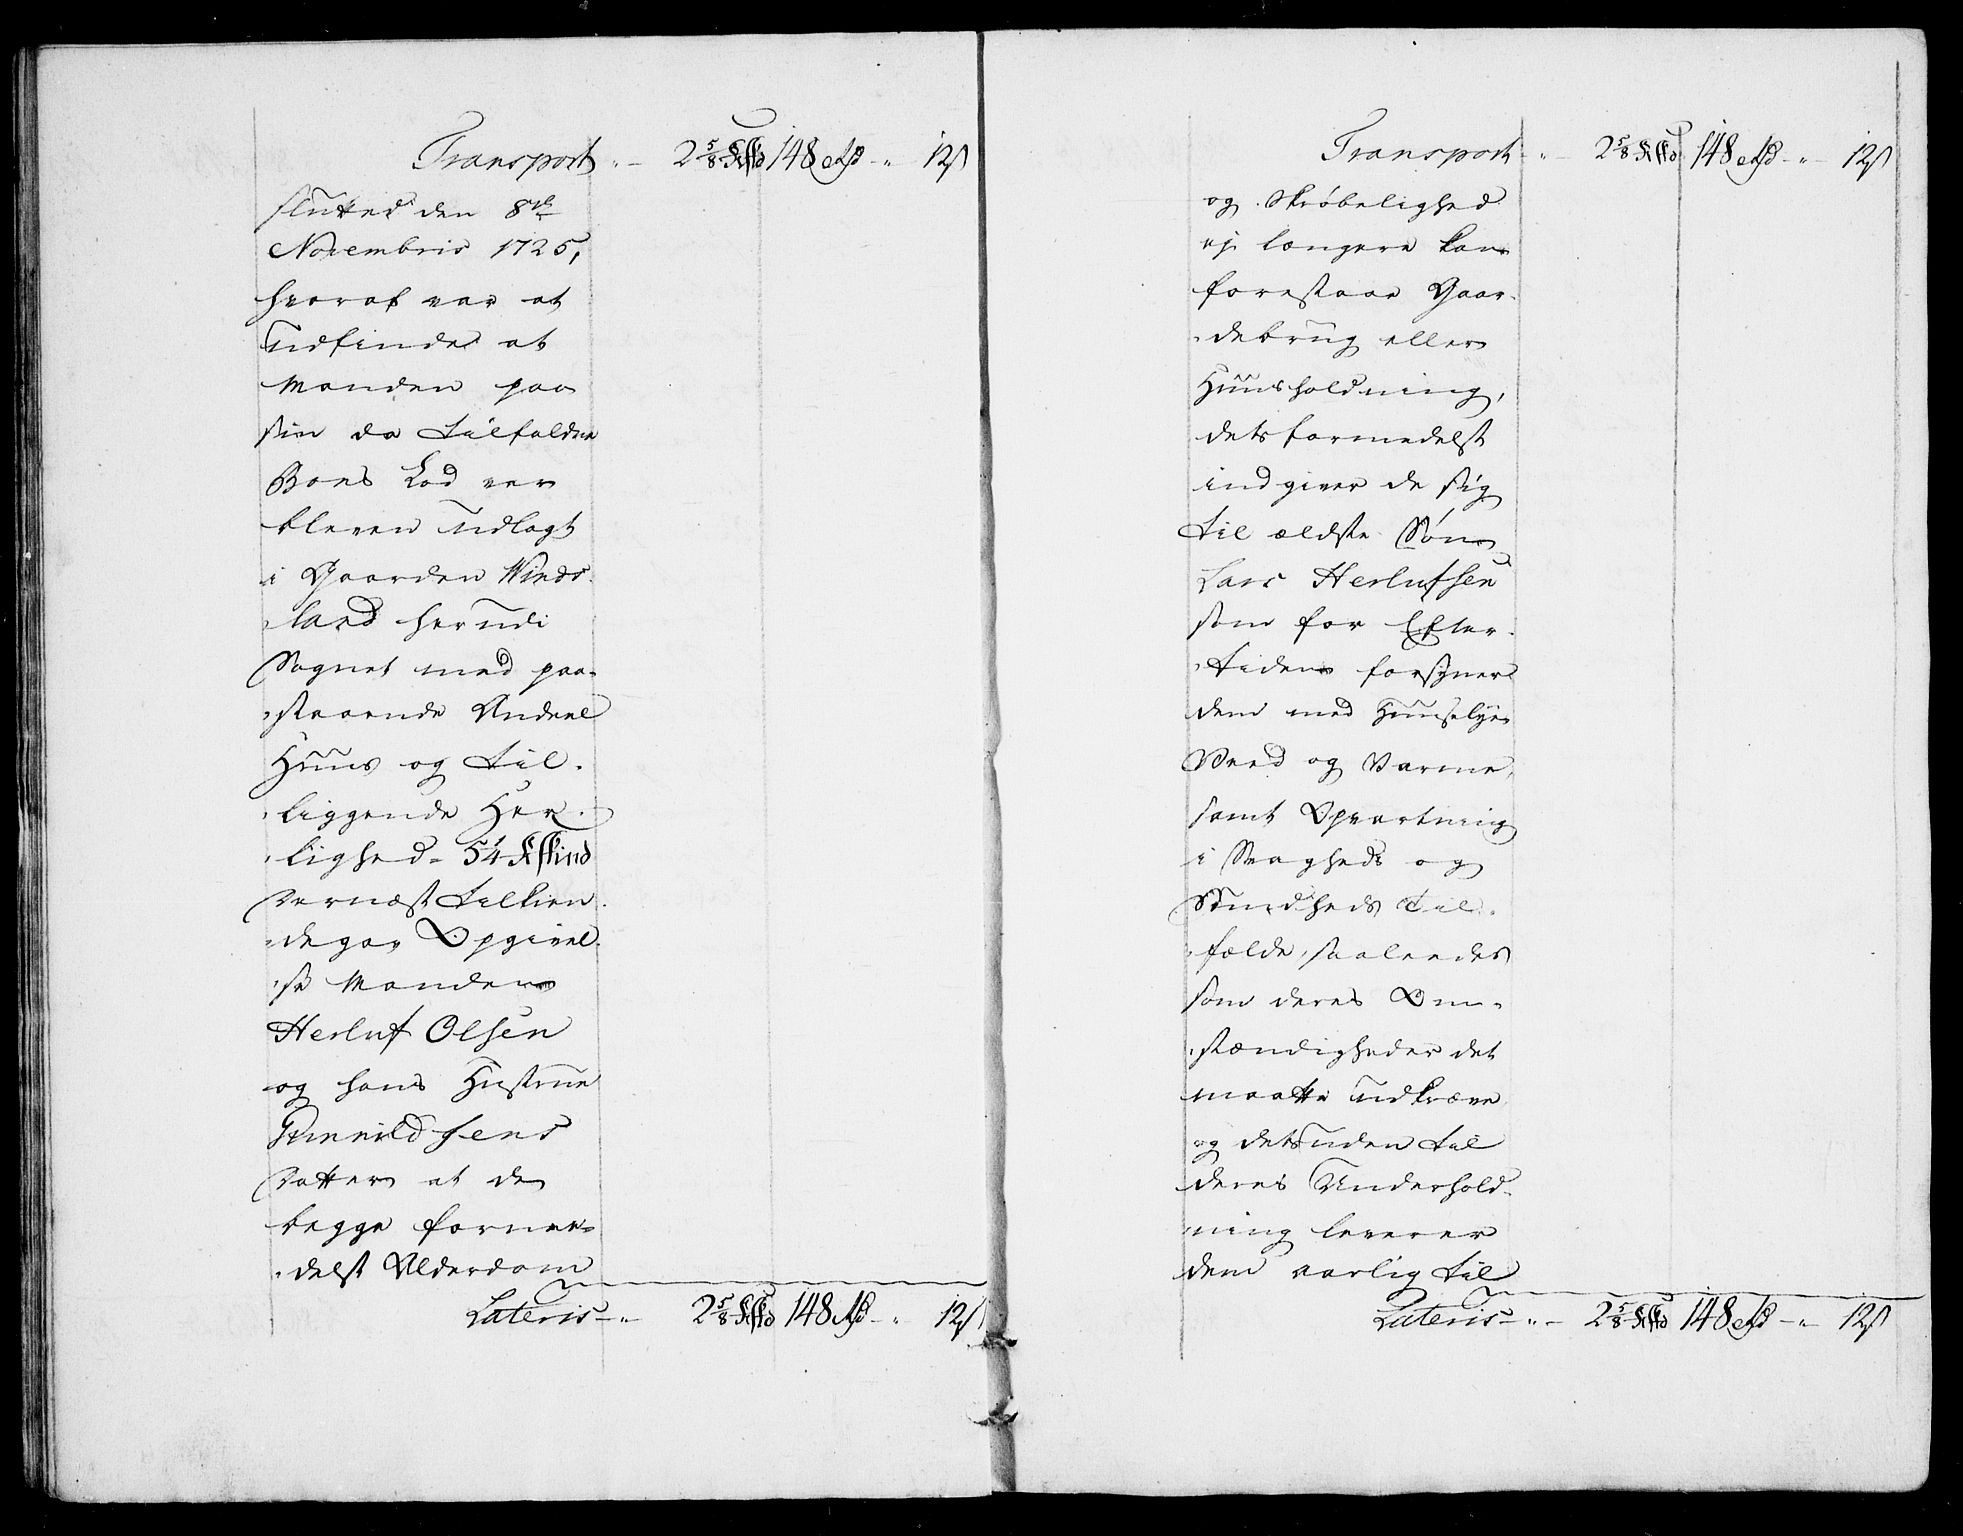 Transport „ – 2 5/8 148 „ 12 ß
slutted den 8de
Novembris 1725,
hvoraf var at
udfinde at
Manden paa
sin da tilfaldne
Boes Lod var
bleven udlagt
i Gaarden Winds-
land herudi
Sognet med paa-
staaende Andeel
Huus og til-
liggende Her-
lighed - 5 1/4 Skind
dernæst tilkien-
degav Opgivel-
se Manden
Herluf Olsen
og hans Hustrue
Gunnild Jens
Datter at de
begge forme-
delst Alderdom
Lateris - „ 2 5/8 148 „ 12 ß
Transport - „ – 2 5/8 148 - „ – 12 ß
og Skrøbelighed
ej længere kan
forestaae Gaar-
debrug eller
Huusholdning,
detsformedelst
indgiver de sig
til ældste Søn
Lars Herlufsen
som for Efter-
tiden forsyner
dem med Huuselye
Veed og Varme,
samt Opvartning
i Svagheds og
Sundheds Til-
fælde, saaleedes
som deres Om-
stændigheder det
maatte udkræve
og desuden til
deres Underhold-
ning leverer
dem aarlig til
Lateris - „ – 2 5/8 148 – „ – 12 ß